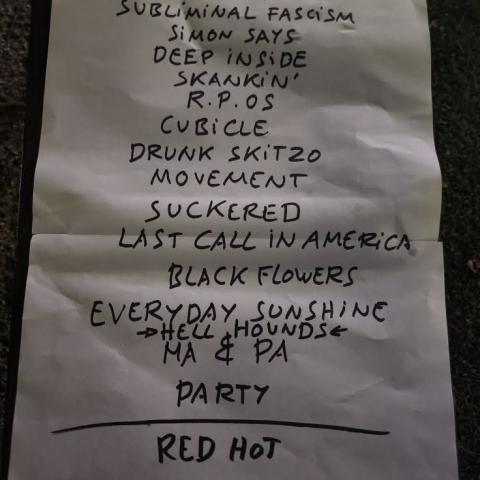 SUBLIMINAL FASCISM
SIMON SAYS
DEEP INSIDE
SKANKIN'
R.P.OS
CUBICLE
DRUNK SKITZO
MOVEMENT
SUCKERED
LAST CALL IN AMERICA
BLACK FLOWERS
EVERYDAY SUNSHINE
→HELL HOUNDS←
MA & PA
PARTY
RED HOT